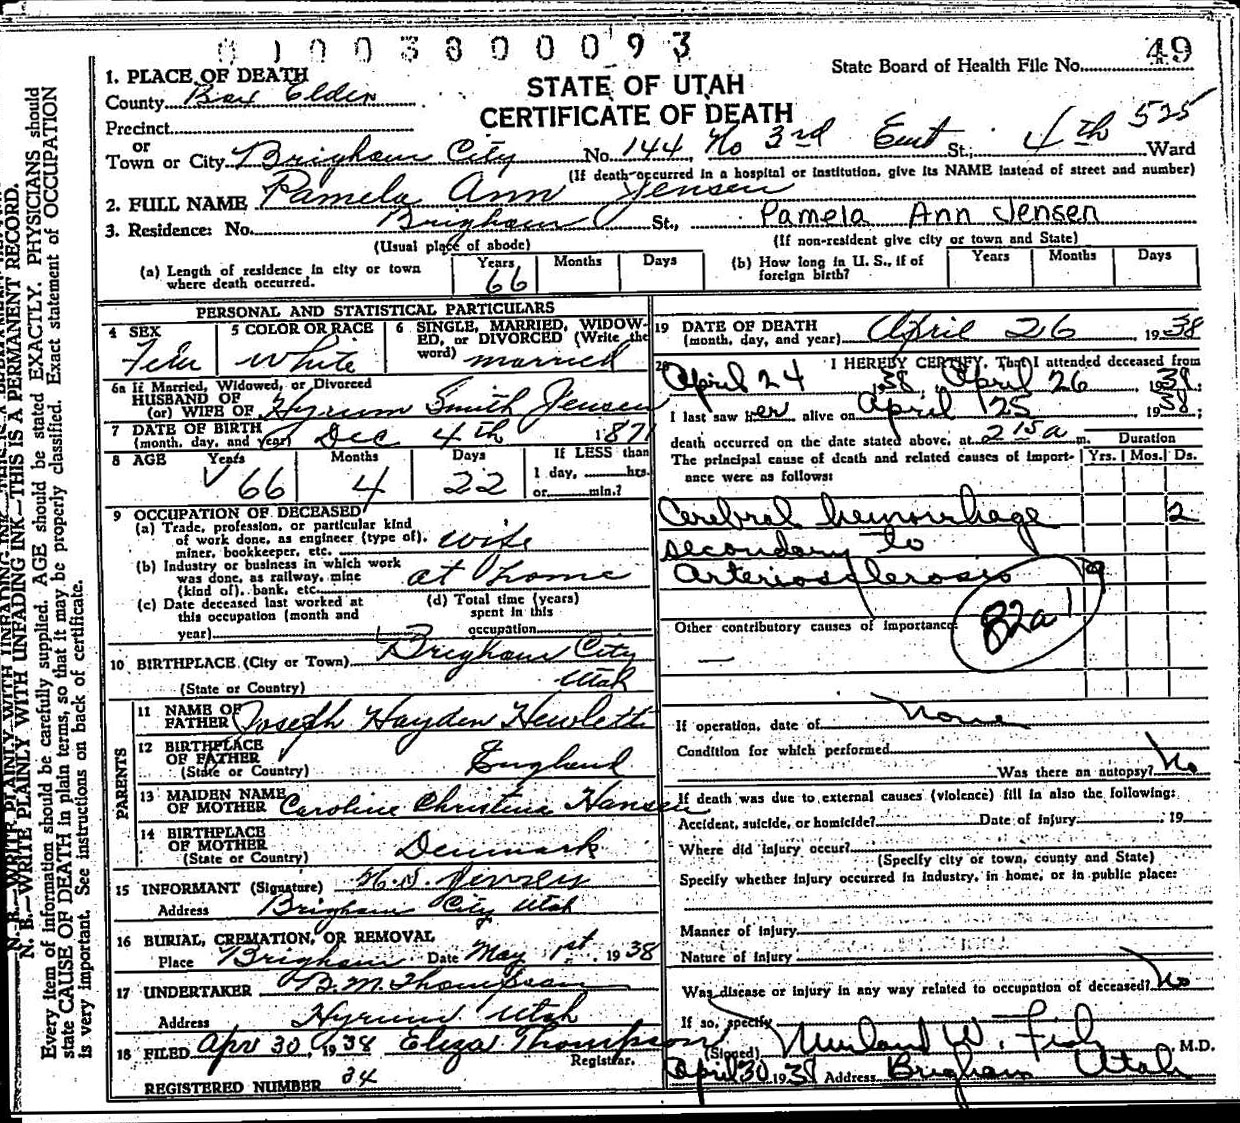 0100380093
49
State Board of Health File No.
STATE OF UTAH
CERTIFICATE OF DEATH
1. PLACE OF DEATH
County Box Elder
Precinct
or
Town or City Brigham City No. 144 No 3rd East St; 4th Ward
525
(If death occurred in a hospital or institution, give its NAME instead of street and number)
2. FULL NAME Pamela Ann Jensen
Pamela Ann Jensen
3. Residence: No. Brigham St.,
(Usual place of abode)
(If non-resident give city or town and State)
(a) Length of residence in city or town where death occurred.
Years 66 Months Days
(b) How long in U. S., if of foreign birth?
Years Months Days
PERSONAL AND STATISTICAL PARTICULARS
4 SEX Fem
5 COLOR OR RACE White
6 SINGLE, MARRIED, WIDOW-
ED, or DIVORCED (Write the
word) married
6a If Married, Widowed, or Divorced
HUSBAND OF
(or) WIFE OF Hyrum Smith Jensen
7 DATE OF BIRTH
(month, day, and year) Dec 4th 1871
8 AGE Years 66 Months 4 Days 22
If LESS than
1 day, hrs.
or min.?
9 OCCUPATION OF DECEASED
(a) Trade, profession, or particular kind
of work done, as engineer (type of),
miner, bookkeeper, etc. wife
(b) Industry or business in which work
was done, as railway, mine
(kind of), bank, etc. at home
(c) Date deceased last worked at
this occupation (month and
year)
(d) Total time (years)
spent in this
occupation
10 BIRTHPLACE (City or Town) Brigham City
(State or Country) Utah
PARENTS
11 NAME OF
FATHER Joseph Hayden Hewlett
12 BIRTHPLACE
OF FATHER
(State or Country) England
13 MAIDEN NAME
OF MOTHER Caroline Christina Hansen
14 BIRTHPLACE
OF MOTHER
(State or Country) Denmark
15 INFORMANT (Signature) H. S. Jensen
Address Brigham City Utah
16 BURIAL, CREMATION, OR REMOVAL
Place Brigham Date May 1st 1938
17 UNDERTAKER B. M. Thompson
Address Hyrum Utah
18 FILED Apr 30, 1938 Eliza Thompson
Registrar.
REGISTERED NUMBER 34
19 DATE OF DEATH
(month, day, and year) April 26 1938
20 I HEREBY CERTIFY, That I attended deceased from
April 24 38 April 26, 1938;
I last saw her alive on April 25 1938;
death occurred on the date stated above, at 2 15 a m.
Duration
The principal cause of death and related causes of import-
ance were as follows:
Yrs. Mos. Ds.
Cerebral hemorrhage 2
secondary to
Arteriosclerosis
82a
Other contributory causes of importance
If operation, date of None
Condition for which performed
Was there an autopsy? No
If death was due to external causes (violence) fill in also the following:
Accident, suicide, or homicide? Date of injury 19
Where did injury occur?
(Specify city or town, county and State)
Specify whether injury occurred in industry, in home, or in public place:
Manner of injury
Nature of injury
Was disease or injury in any way related to occupation of deceased? No
If so, specify
(Signed) W. Fish M.D.
April 30 1938 Address Brigham Utah
N. B.—WRITE PLAINLY WITH UNFADING INK—THIS IS A PERMANENT RECORD.
Every item of information should be carefully supplied. AGE should be stated EXACTLY. PHYSICIANS should
state CAUSE OF DEATH in plain terms, so that it may be properly classified. Exact statement of OCCUPATION
is very important. See instructions on back of certificate.